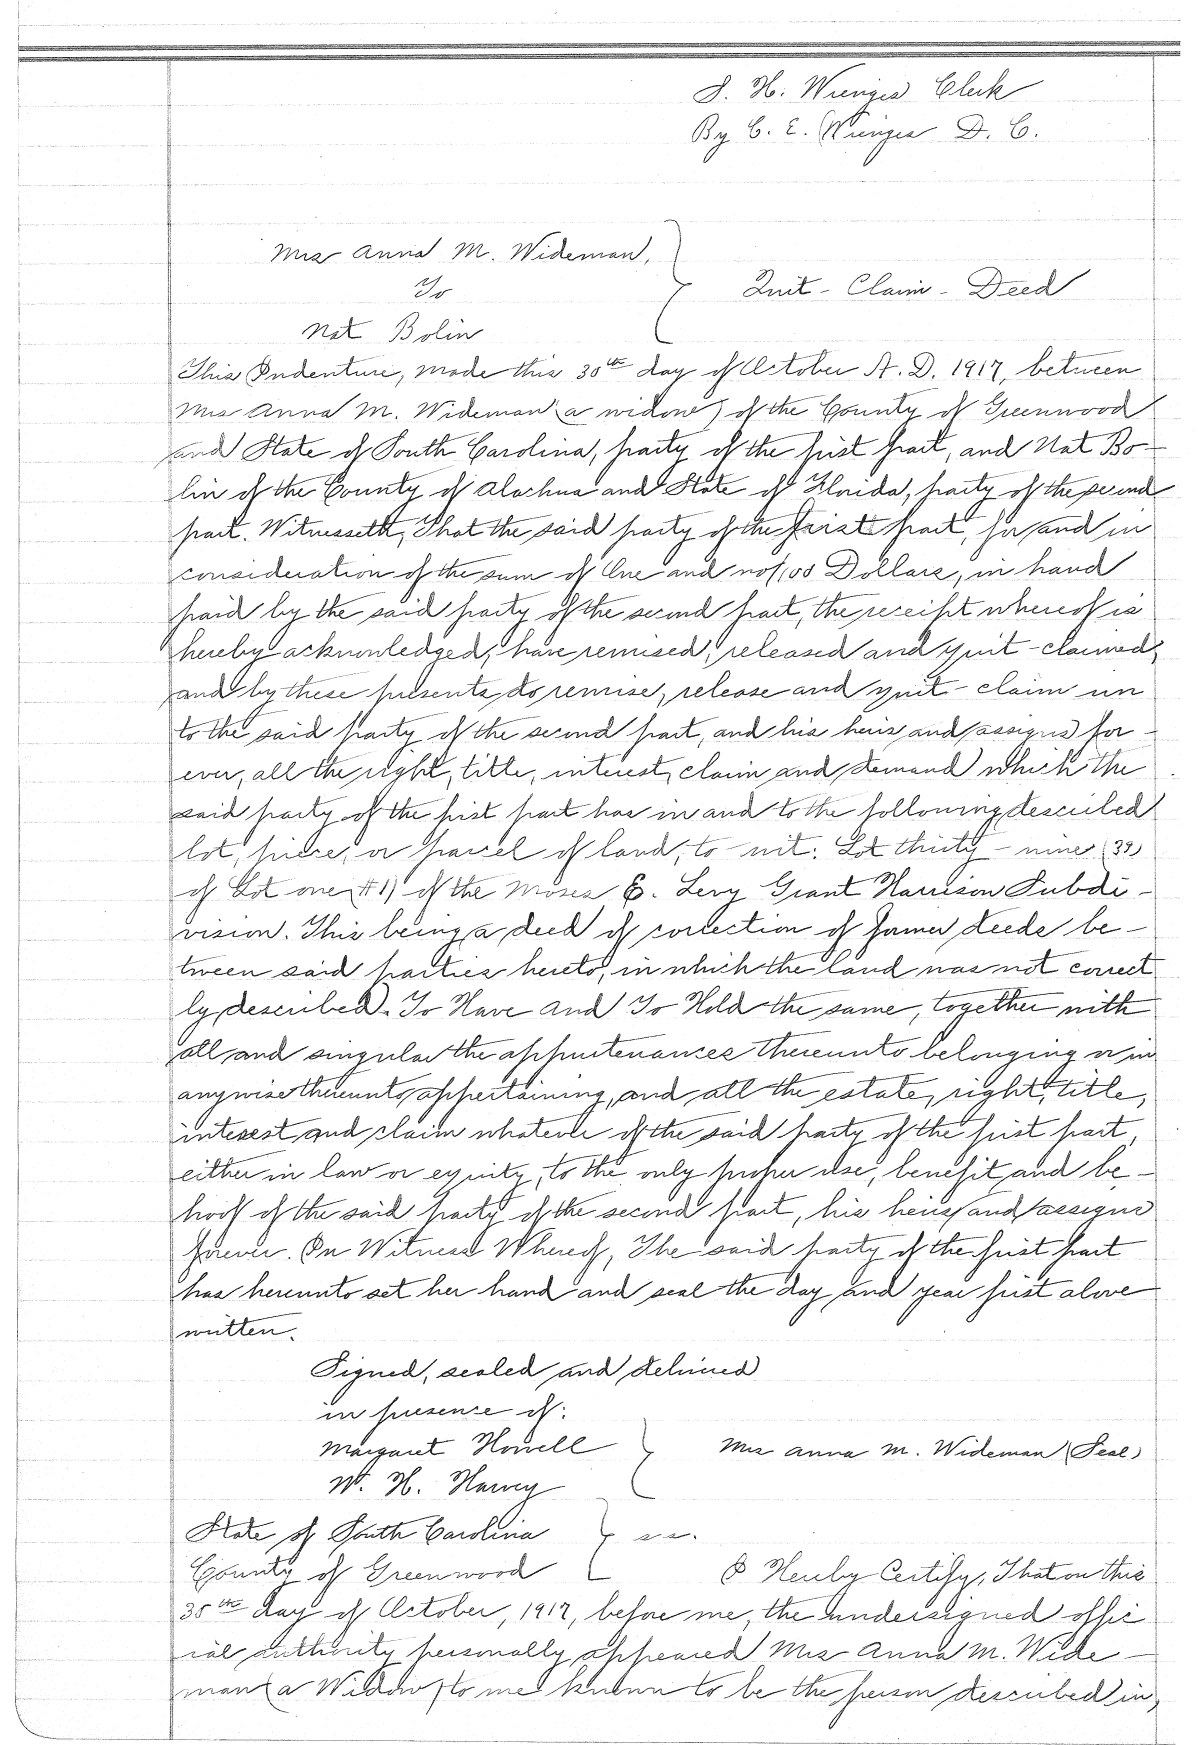 S. H. Wienges Clerk
By C. E. Wienges D. C.
Mrs Anna M. Wideman,
To
Quit - Claim - Deed
Nat Bolin
This Indenture, made this 30th day of October A. D. 1917, between
Mrs Anna M. Wideman (a widow) of the County of Greenwood
and State of South Carolina, party of the first part, and Nat Bo-
lin of the County of Alachua and State of Florida, party of the second
part. Witnesseth, That the said party of the first part, for and in
consideration of the sum of One and no/100 Dollars, in hand
paid by the said party of the second part, the receipt whereof is
hereby acknowledged, have remised, released and quit-claimed,
and by these presents do remise, release and quit-claim un
to the said party of the second part, and his heirs and assigns for-
ever, all the right, title, interest, claim and demand which the
said party of the first part has in and to the following described
lot, piece, or parcel of land, to-wit: Lot thirty-nine (39)
of Lot one (#1) of the Moses E. Levy Grant Harrison Subdi-
vision. This being a deed of correction of former deeds be-
tween said parties hereto, in which the land was not correct
ly described. To Have and To Hold the same, together with
all and singular the appurtenances thereunto belonging or in
anywise thereunto appertaining, and all the estate, right, title,
interest and claim whatever of the said party of the first part,
either in law or equity, to the only proper use, benefit and be-
hoof of the said party of the second part, his heirs and assigns
forever. In Witness Whereof, The said party of the first part
has hereunto set her hand and seal the day and year first above
written.
Signed, sealed and delivered
in presence of:
Margaret Howell
Mrs Anna M. Wideman (Seal)
W. H. Harvey
State of South Carolina
s.s.
County of Greenwood
I Hereby Certify, That on this
30th day of October, 1917, before me, the undersigned offic
ial authority personally appeared Mrs Anna M. Wide-
man (a Widow) to me known to be the person described in,